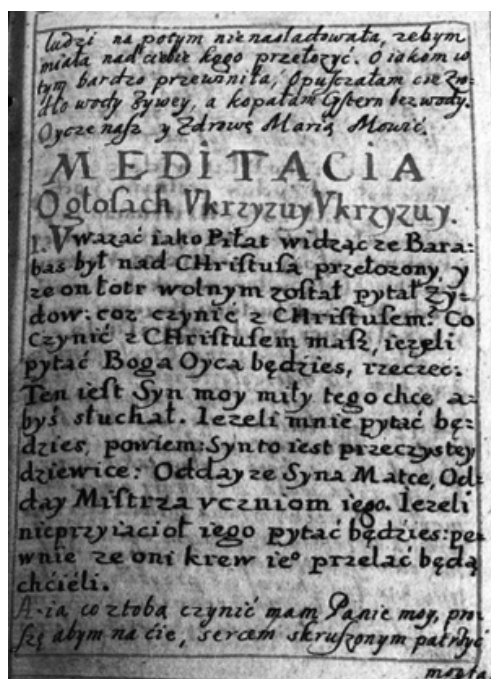 ludzi na potym nie nasladowała, zebym
miała nad ciebie kogo przełozyć. O iakom w
tym bardzo przewiniła, Opuszczałam cie Zro-
dło wody Zywey, a kopałam Cystern bez wody.
Oycze nasz y Zdrowę Marią Mowić.
MEDITACIA
O głosach Vkrzyzuy Vkrzyzuy.
1. Vwazać iako Piłat widząc ze Bara:
bas był nad CHristusa przełozony, y
ze on łotr wolnym został pytał Zy-
dow: coz czynić z CHristusem? Co
czynić z CHristusem masz, iezeli
pytać Boga Oyca będzies, rzecze:
Ten iest Syn moy miły tego chcę a-
byś słuchał. Iezeli mnie pytać bę:
dzies, powiem: Syn to iest przeczystey
dziewice: Oddayze Syna Matce, Od:
day Mistrza vczniom iego. Iezeli
nieprzyiacioł iego pytać będzies: pe-
wnie ze oni krew ieº przelać będą
chcieli.
A ia co z tobą czynić mam Panie moy, pro-
szę abym na cie, sercem skruszonym patrzyć
mogła